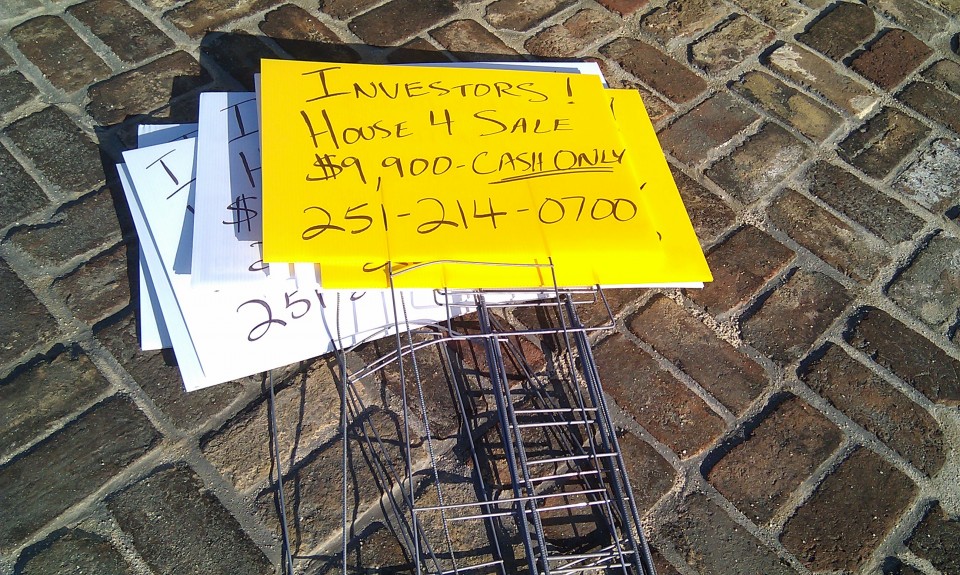 INVESTORS!
HOUSE 4 SALE
$9,900-CASH ONLY
251-214-0700
I
H
$
251